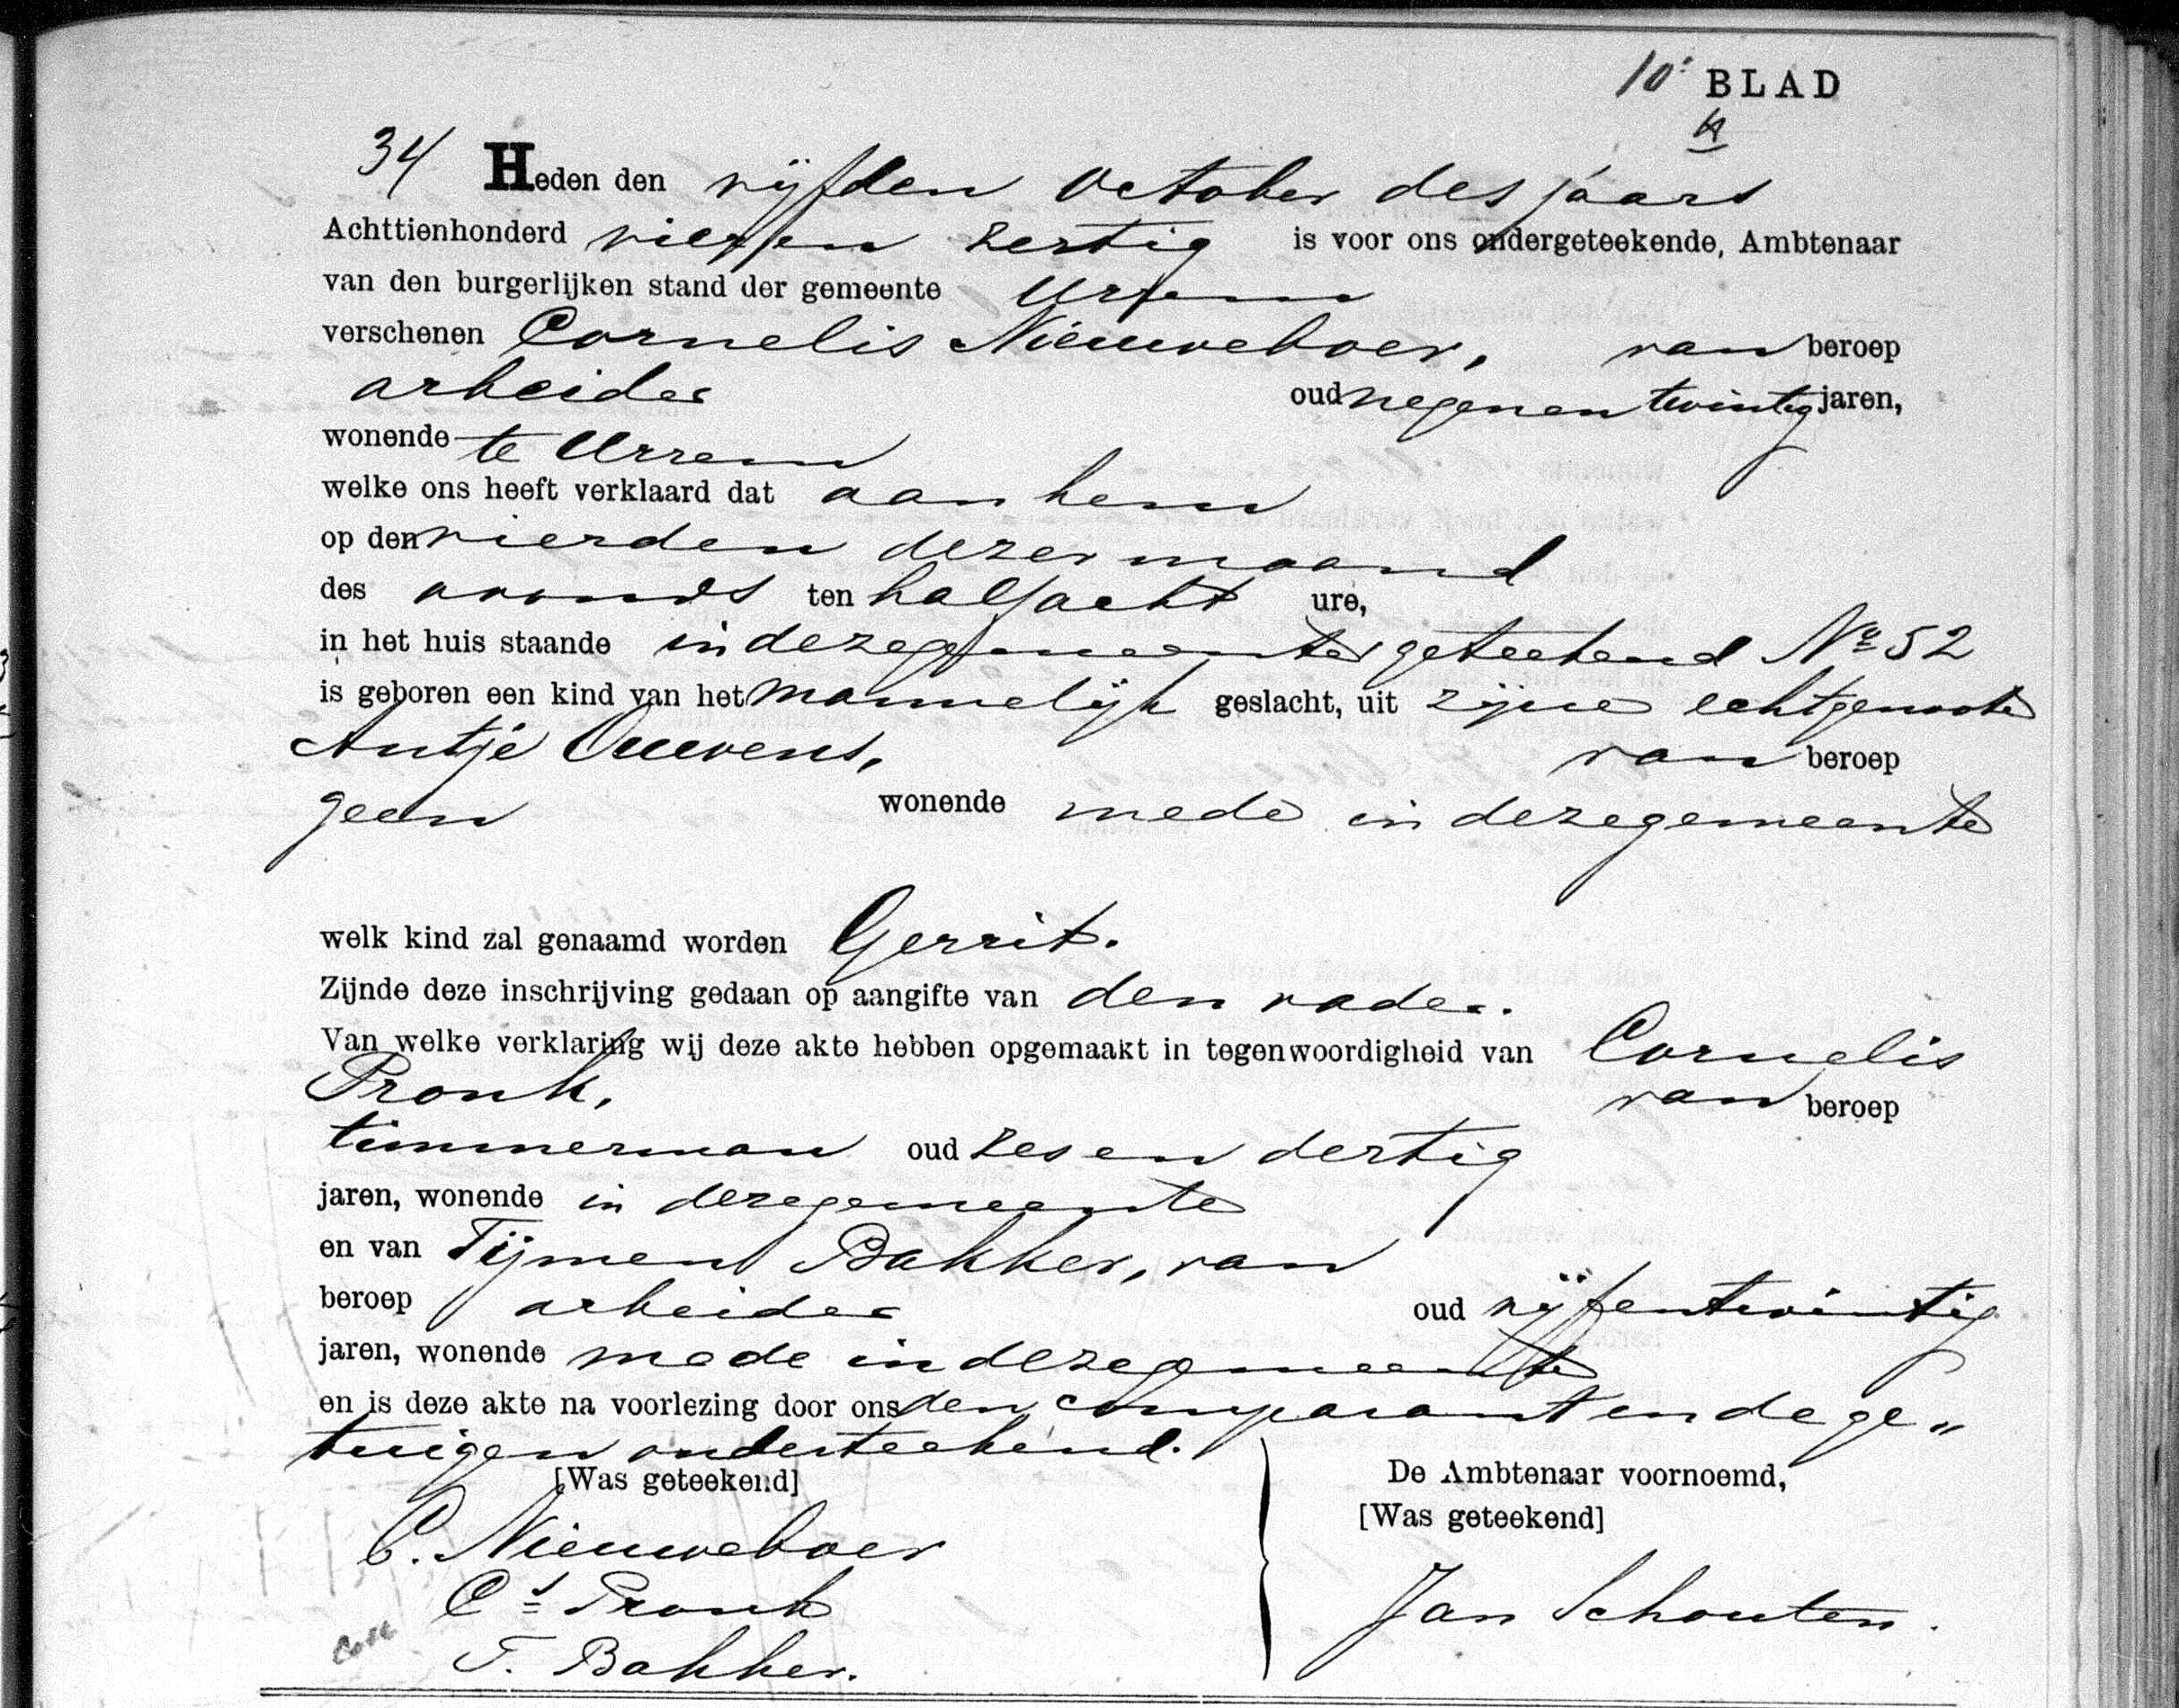 10e BLAD
34 Heden den vijfden October des jaars
Achttienhonderd vier en zestig is voor ons ondergeteekende, Ambtenaar
van den burgerlijken stand der gemeente Ursem
verschenen Cornelis Nieuweboer, van beroep
arbeider oud negen en twintig jaren,
wonende te Ursem
welke ons heeft verklaard dat aan hem
op den vierden dezer maand
des avonds ten half acht ure,
in het huis staande in deze gemeente geteekend No 52
is geboren een kind van het mannelijk geslacht, uit zijne echtgenoote
Antje Ouwens, van beroep
geen wonende mede in deze gemeente
welk kind zal genaamd worden Gerrit.
Zijnde deze inschrijving gedaan op aangifte van den vader.
Van welke verklaring wij deze akte hebben opgemaakt in tegenwoordigheid van Cornelis
Pronk, van beroep
timmerman oud zes en dertig
jaren, wonende in deze gemeente
en van Tijmen Bakker, van
beroep arbeider oud vijfentwintig
jaren, wonende mede in deze gemeente
en is deze akte na voorlezing door ons den comparant en de ge„
tuigen onderteekend.
[Was geteekend] De Ambtenaar voornoemd,
[Was geteekend]
C. Nieuweboer
Cs Pronk Jan Schouten.
T. Bakker.